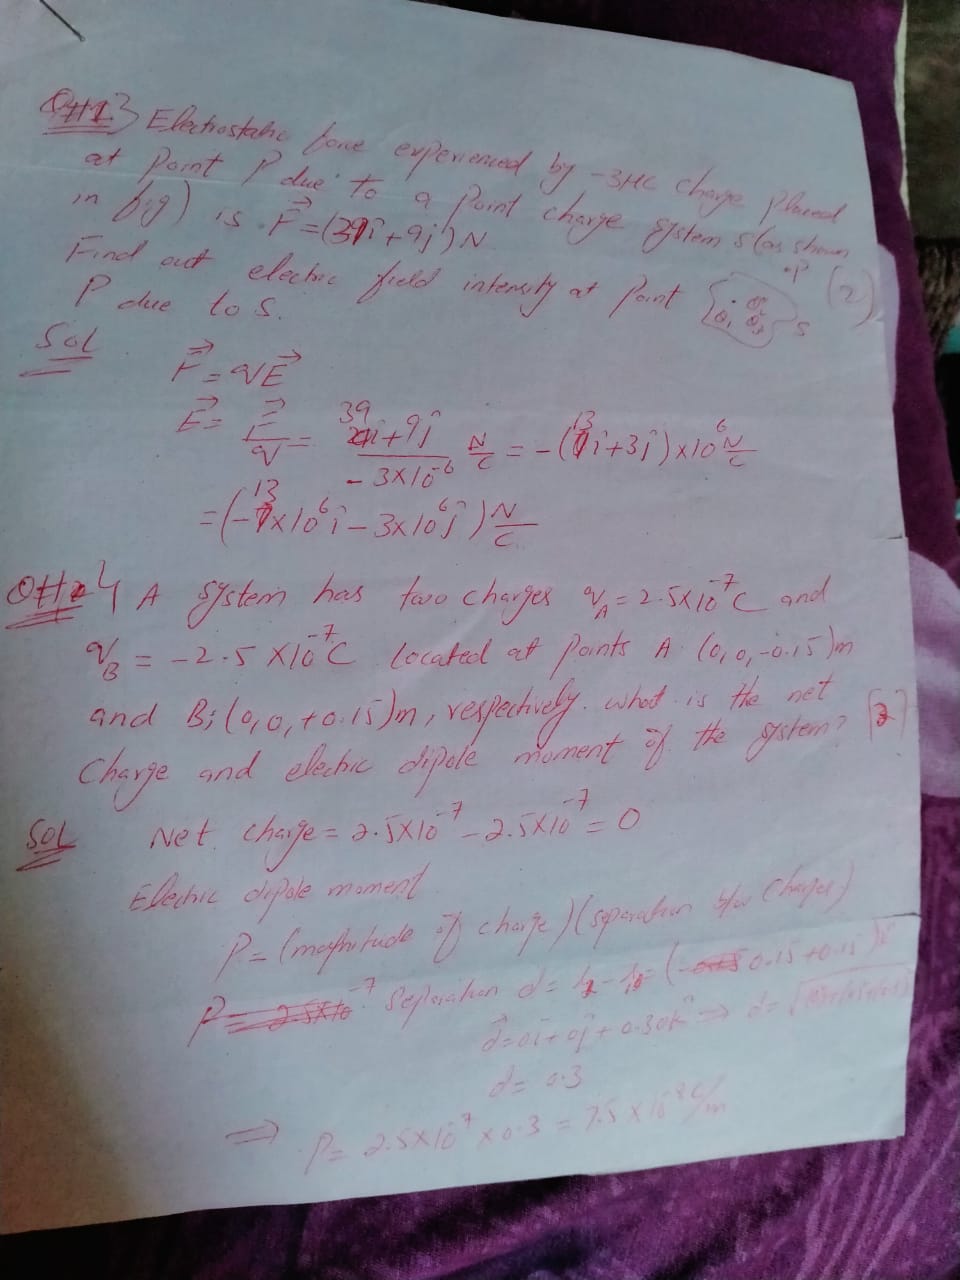 Q#13 Electrostatic force experienced by -3μC charge placed
at point P due to a point charge system S (as shown
in fig) is F⃗ = (39î + 9ĵ) N
Find out electric field intensity at point
P due to S. (2)
•P
Q₁ Q₂ Q₃ S
Sol
F⃗ = qE⃗
E⃗ = F⃗/q = (39î + 9ĵ)/(-3×10⁻⁶) N/C = -(13î + 3ĵ)×10⁶ N/C
= (-13×10⁶î - 3×10⁶ĵ) N/C
Q#4 A system has two charges q_A = 2.5×10⁻⁷C and
q_B = -2.5×10⁻⁷C located at points A (0,0,-0.15)m
and B; (0,0,+0.15)m, respectively. what is the net
Charge and electric dipole moment of the system?
Sol Net charge = 2.5×10⁻⁷ - 2.5×10⁻⁷ = 0
Electric dipole moment
P = (magnitude of charge)(separation b/w charges)
Separation d = (0.15 + 0.15)
d⃗ = 0î + 0ĵ + 0.30k̂ ⇒ d =
d = 0.3
⇒ P = 2.5×10⁻⁷ × 0.3 = 7.5×10⁻⁸ C/m